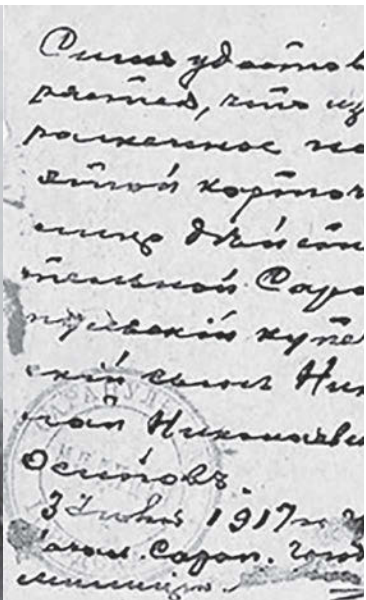 Симъ удостов
ряется, что из
раженное на
этой карточ
лицо дѣйстви
тельной Сара
пульскій купе
скій сынъ Ник
лай Николаеви
Осиповъ.
3 Іюня 1917 г.
Сарап. гор
милиціи.